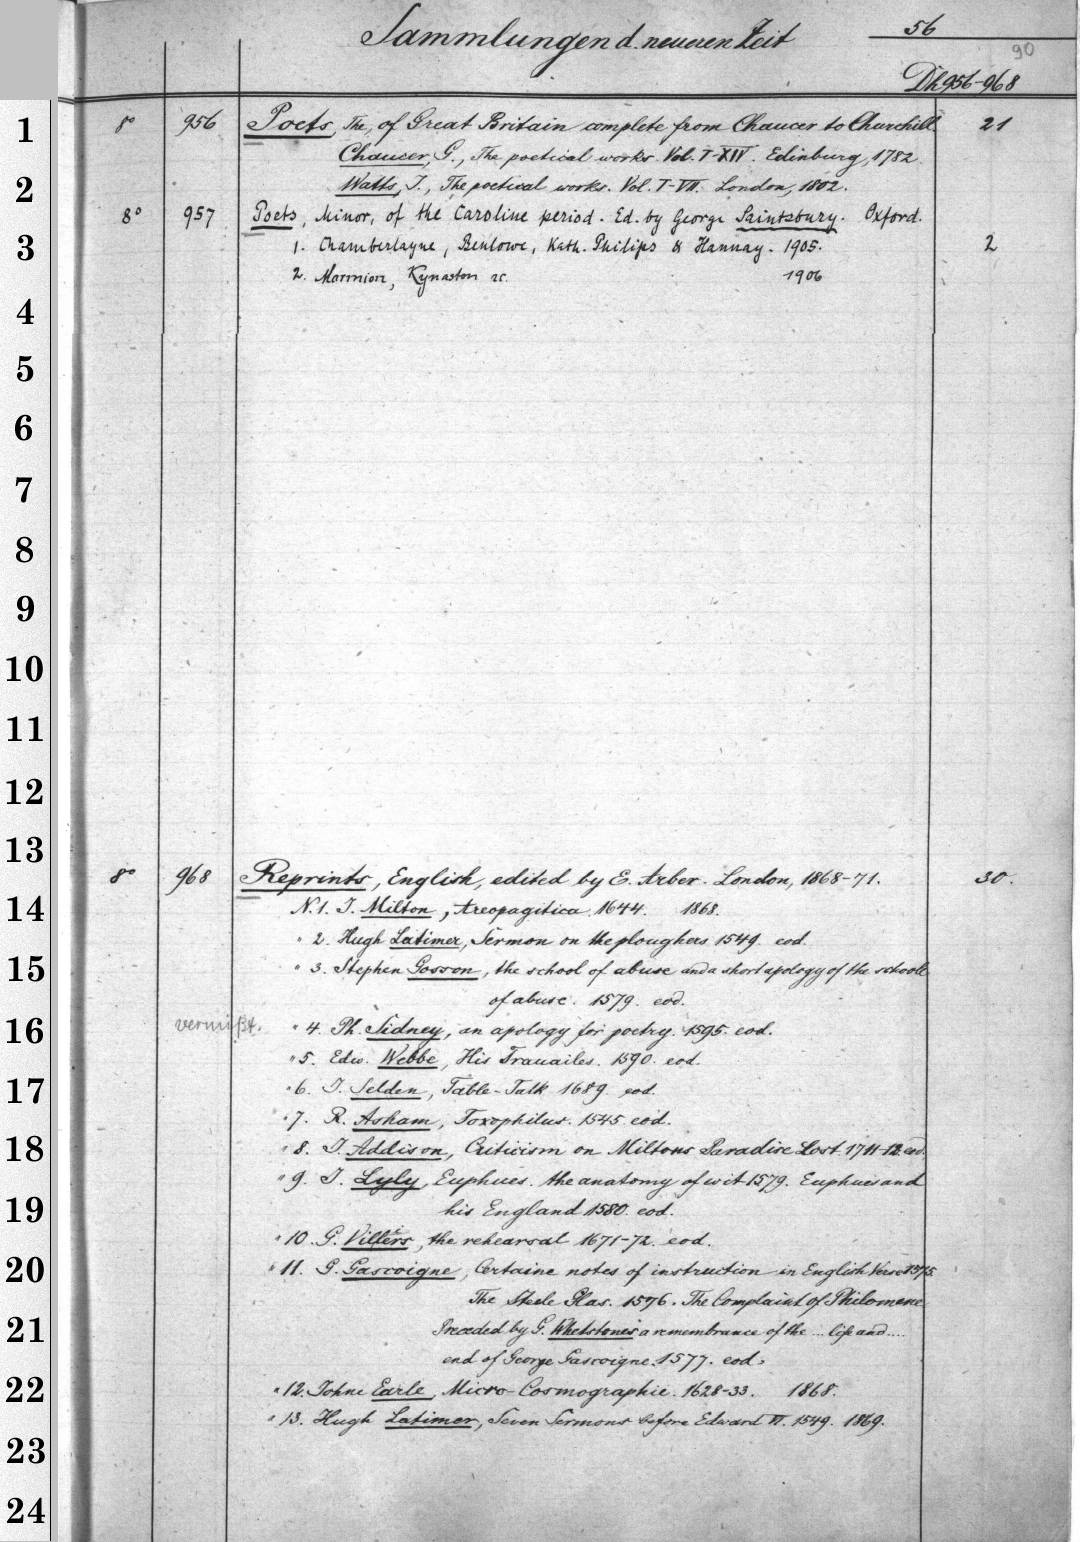 Sammlungen d. neueren Zeit
56
90
Dh 956-968
1
8° 956 Poets, The, of Great Britain complete from Chaucer to Churchill. 21
Chaucer, G., The poetical works. Vol. I-XIV. Edinburg, 1782.
2
Watts, I., The poetical works. Vol. I-VII. London, 1802.
8° 957 Poets, Minor, of the Caroline period. Ed. by George Saintsbury. Oxford.
3
1. Chamberlayne, Benlowe, Kath. Philips & Hannay. 1905. 2
2. Marmion, Kynaston &c. 1906
4
5
6
7
8
9
10
11
12
13
8° 968 Reprints, English, edited by E. Arber. London, 1868-71. 30.
14
N. 1. J. Milton, Areopagitica. 1644. 1868.
" 2. Hugh Latimer, Sermon on the ploughers 1549. eod.
15
" 3. Stephen Gosson, the school of abuse and a short apology of the schoole
of abuse. 1579. eod.
16
vermißt. " 4. Ph. Sidney, an apology for poetry. 1595. eod.
" 5. Edw. Webbe, His Trauailes. 1590. eod.
17
" 6. J. Selden, Table-Talk 1689. eod.
" 7. R. Asham, Toxophilus. 1545. eod.
18
" 8. J. Addison, Criticism on Miltons Paradise Lost. 1711-12. eod.
" 9. J. Lyly, Euphues. the anatomy of wit 1579. Euphues and
19
his England 1580. eod.
" 10. G. Villiers, the rehearsal 1671-72. eod.
20
" 11. G. Gascoigne, Certaine notes of instruction in English Verse 1575.
The Steele Glas. 1576. The Complaint of Philomene.
21
Preceded by G. Whetstone's a remembrance of the ... life and ....
end of George Gascoigne. 1577. eod.
22
" 12. Johne Earle, Micro-Cosmographie. 1628-33. 1868.
" 13. Hugh Latimer, Seven Sermons before Edward VI. 1549. 1869.
23
24